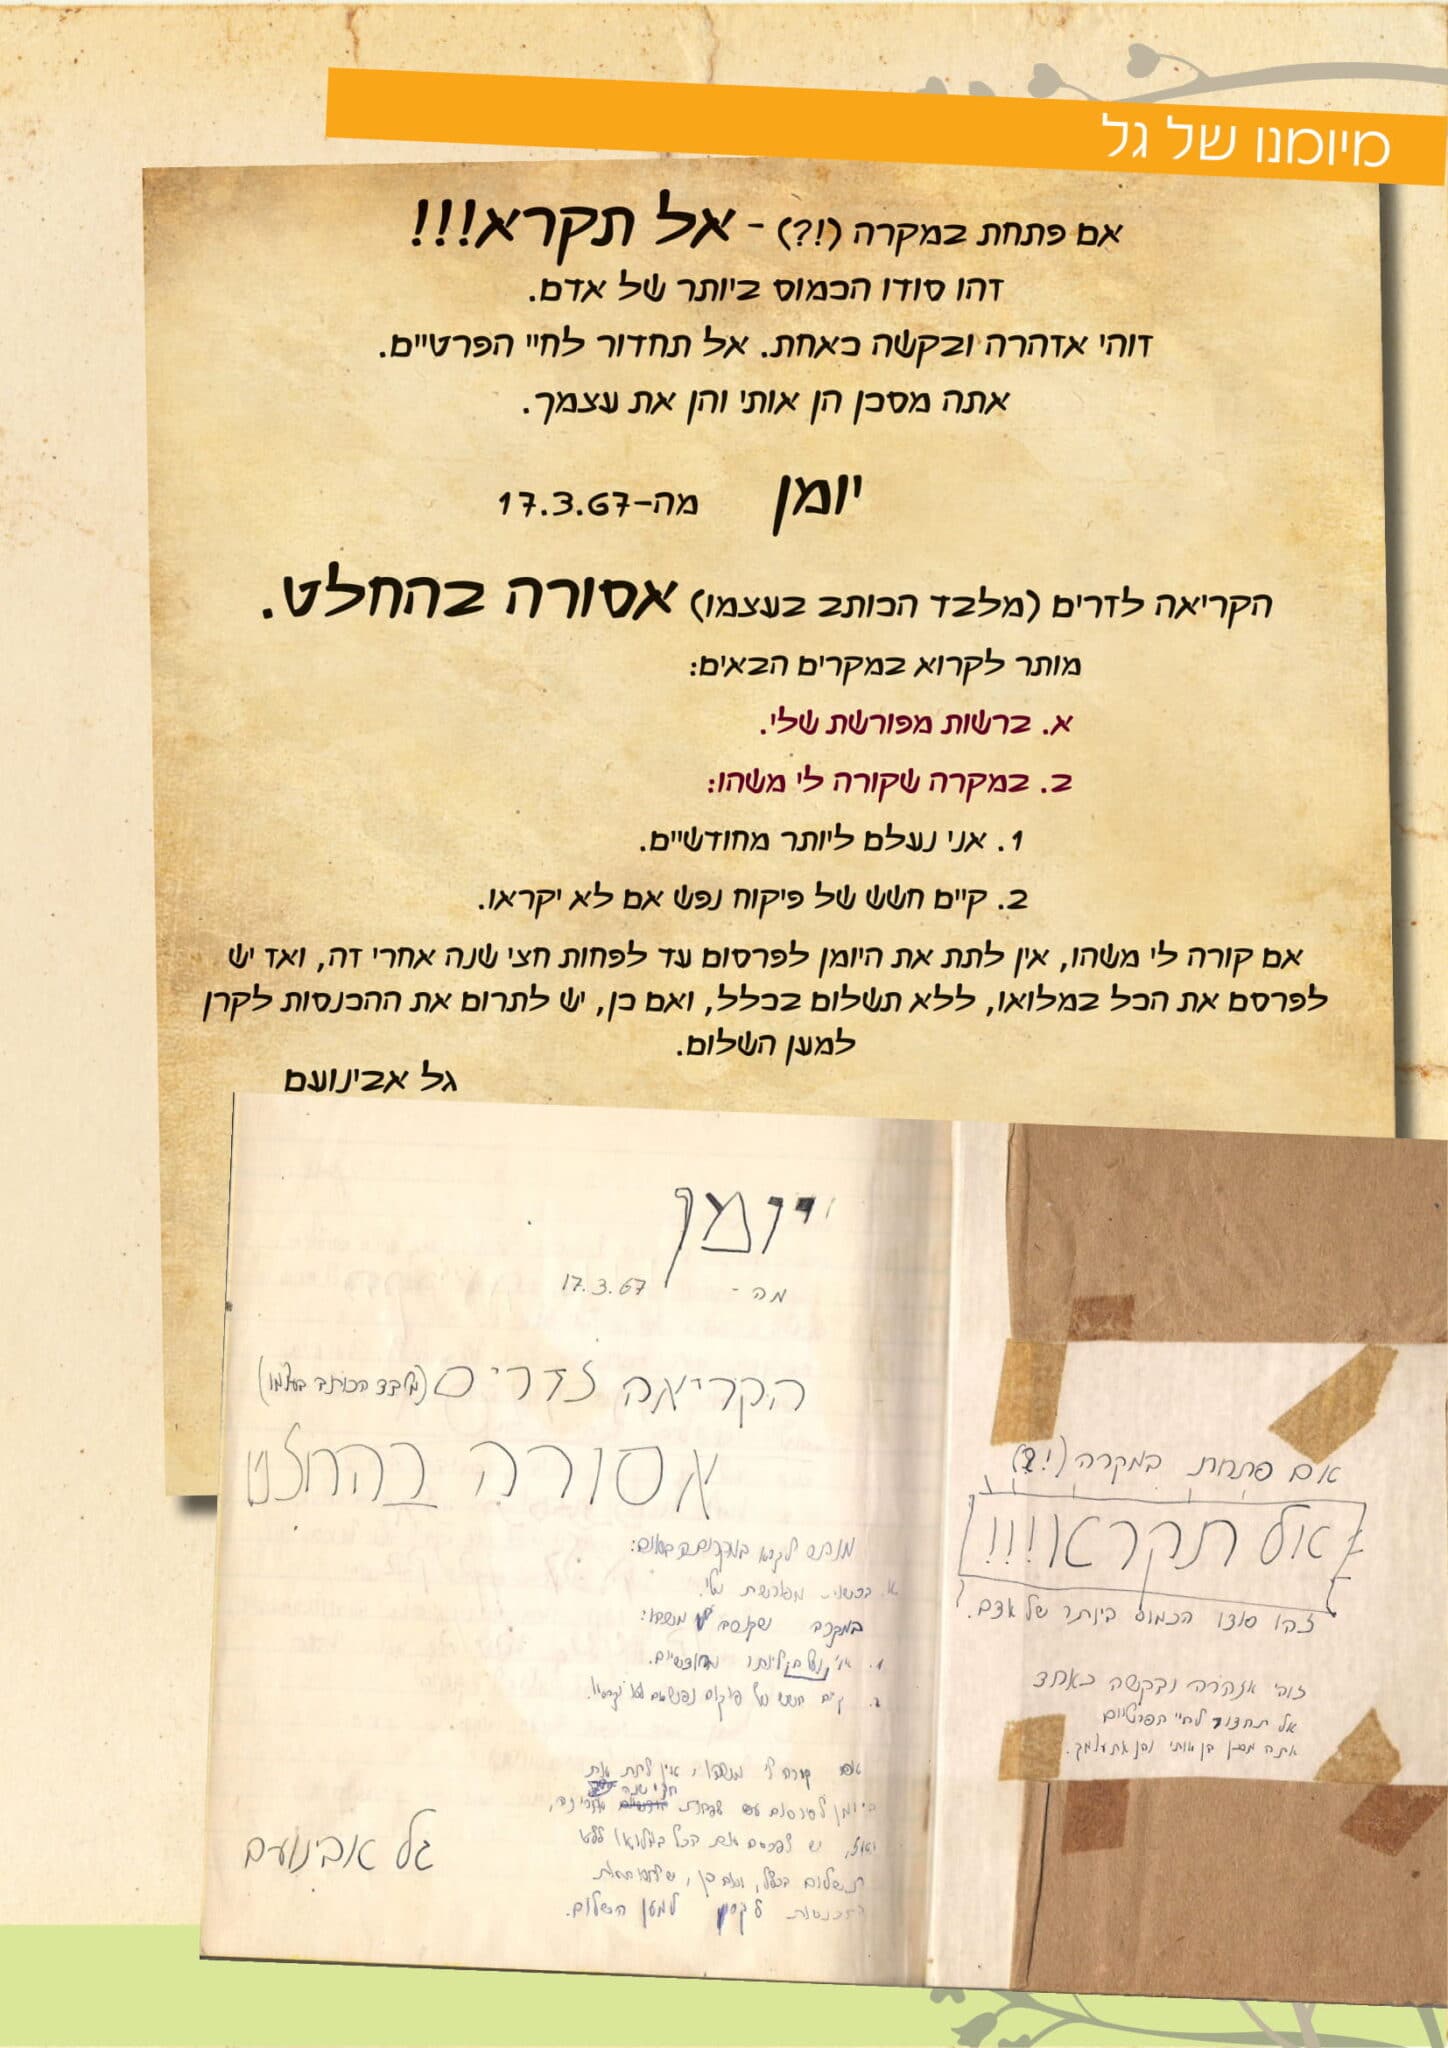 מיומנו של גל
אם פתחת במקרה (!?) - אל תקרא!!!
זהו סודו הכמוס ביותר של אדם.
זוהי אזהרה ובקשה כאחת. אל תחדור לחיי הפרטיים.
אתה מסכן הן אותי והן את עצמך.
יומן מה-17.3.67
הקריאה לזרים (מלבד הכותב בעצמו) אסורה בהחלט.
מותר לקרוא במקרים הבאים:
א. ברשות מפורשת שלי.
ב. במקרה שקורה לי משהו:
1. אני נעלם ליותר מחודשיים.
2. קיים חשש של פיקוח נפש אם לא יקראו.
אם קורה לי משהו, אין לתת את היומן לפרסום עד לפחות חצי שנה אחרי זה, ואז יש
לפרסם את הכל במלואו, ללא תשלום בכלל, ואם כן, יש לתרום את ההכנסות לקרן
למען השלום.
גל אבינועם
אם פתחת במקרה (!?)
אל תקרא!!!
זהו סודו הכמוס ביותר של אדם.
זוהי אזהרה ובקשה כאחד
אל תחדור לחיי הפרטיים
אתה מסכן הן אותי והן את עצמך.
יומן
מה - 17.3.67
הקריאה לזרים (מלבד הכותב בעצמו)
אסורה בהחלט
מותר לקרא במקרים הבאים:
א. ברשות מפורשת שלי.
במקרה שקורה לי משהו:
1. אני נעלם ליותר מחודשיים.
2. קיים חשש של פיקוח נפש אם לא יקראו.
אם קורה לי משהו, אין לתת את
חצי שנה
היומן לפרסום עד לפחות אחרי זה,
ואז, יש לפרסם את הכל במלואו ללא
תשלום בכלל, ואם כן, יש לתרום את
ההכנסות לקרן למען השלום.
גל אבינועם